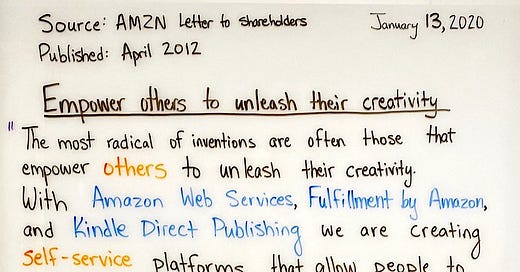 Source: AMZN Letter to Shareholders January 13, 2020
Published: April 2012
Empower others to unleash their creativity
" The most radical of inventions are often those that
empower others to unleash their creativity.
With Amazon Web Services, Fulfillment by Amazon,
and Kindle Direct Publishing we are creating
self-service platforms that allow people to